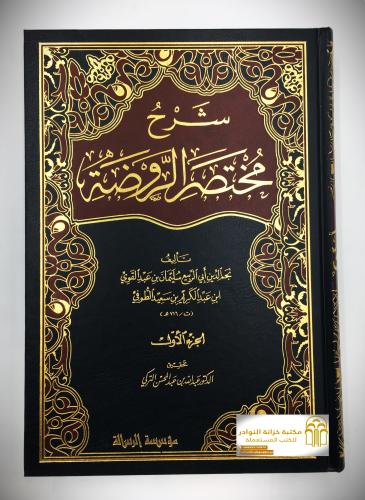 شرح
مختصر الروضة
تأليف
نجم الدين أبي الربيع سليمان بن عبد القوي
ابن عبد الكريم بن سعيد الطوفي
(ت / ٧١٦ هـ)
الجزء الأول
تحقيق
الدكتور عبد الله بن عبد المحسن التركي
مؤسسة الرسالة
مكتبة خزانة النوادر
للكتب المستعملة